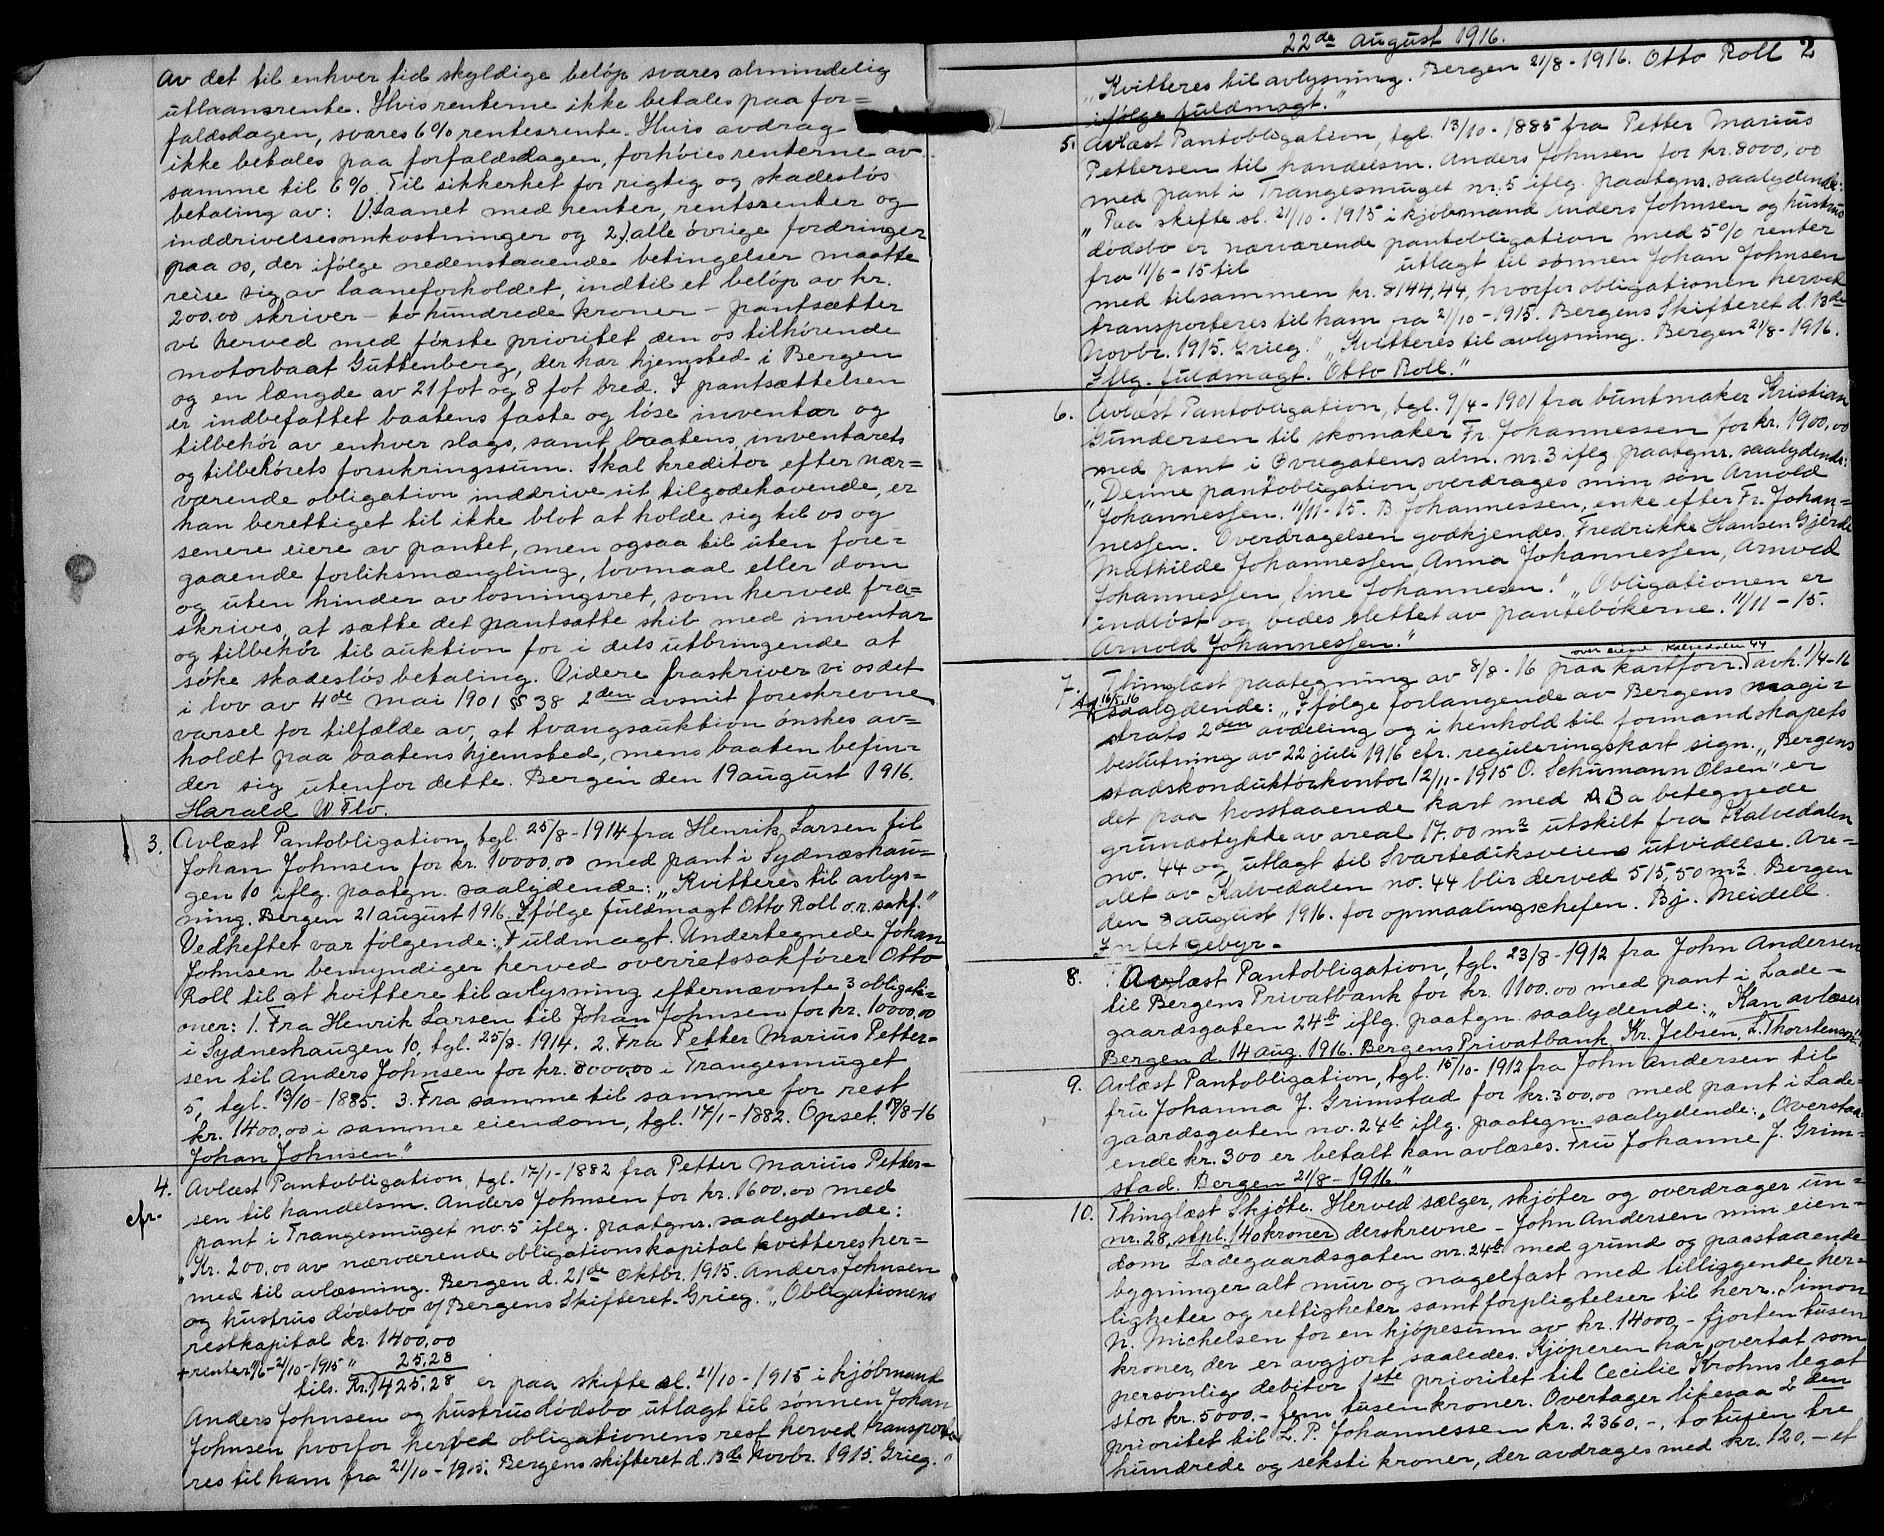 av det til enhver tid skyldige beløp svares almindelig
utlaansrente. Hvis renterne ikke betales paa for=
faldsdagen, svares 6% rentesrente. Hvis avdrag
ikke betales paa forfaldsdagen, forhøies renterne av
samme til 6%. Til sikkerhet for rigtig og skadesløs
betaling av: 1.) laanet med renter, rentesrenter og
inddrivelsesomkostninger og 2.) alle øvrige fordringer
paa os, der ifølge nedenstaaende betingelser maatte
reise sig av laaneforholdet, indtil et beløp av kr.
200.00 skriver – to hundrede kroner – pantsætter
vi herved med første prioritet den os tilhørende
motorbaat Guttenberg, der har hjemsted i Bergen
og en længde av 21 fot og 8 fot bred. I pantsættelsen
er indbefattet baatens faste og løse inventar og
tilbehør av enhver slags, samt baatens, inventarets
og tilbehørets forsikringssum. Skal kreditor efter nær=
værende obligation inddrive sit tilgodehavende, er
han berettiget til ikke blot at holde sig til os og
senere eiere av pantet, men ogsaa til uten fore=
gaaende forliksmægling, lovmaal eller dom
og uten hinder av løsningsret, som herved fra=
skrives, at sætte det pantsatte skib med inventar
og tilbehør til auktion for i dets utbringende at
søke skadesløs betaling. Videre fraskriver vi os det
i lov av 4de mai 1901 § 38 2den avsnit foreskrevne
varsel for tilfælde av, at tvangsauktion ønskes av=
holdt paa baatens hjemsted, mens baaten befin=
der sig utenfor dette. Bergen den 19 august 1916.
Harald W Flo.
3. Avlæst Pantobligation, tgl. 25/8 - 1914 fra Henrik Larsen til
Johan Johnsen for kr. 10000,00 med pant i Sydnæshau=
gen 10 iflg. paategn. saalydende: „Kvitteres til avlys=
ning. Bergen 21 august 1916. Ifølge fuldmagt Otto Roll o.r. sakf."
Vedheftet var følgende: „Fuldmagt. Undertegnede Johan
Johnsen bemyndiger herved overretssakfører Otto
Roll til at kvittere til avlysning efternævnte 3 obligati=
oner: 1. Fra Henrik Larsen til Johan Johnsen for kr. 10000,00
i Sydneshaugen 10, tgl. 25/8 - 1914. 2. Fra Petter Marius Petter=
sen til Anders Johnsen for kr. 8000,00 i Trangesmuget
5, tgl. 13/10 - 1885. 3. Fra samme til samme for rest
kr. 1400,00 i samme eiendom, tgl. 17/1 - 1882. Opset. 19/8-16
Johan Johnsen"
4. Avlæst Pantobligation, tgl. 17/1 - 1882 fra Petter Marius Petter=
cfr. sen til handelsm. Anders Johnsen for kr. 1600,00 med
pant i Trangesmuget no. 5 iflg. paategnr. saalydende:
„Kr. 200,00 av nærværende obligationskapital kvitteres her=
med til avlæsning. Bergen d. 21de oktbr. 1915. Anders Johnsen
og hustrus dødsbo v/ Bergens Skifteret. Grieg." „Obligationens
restkapital kr. 1400,00
+ renter 11/6 - 21/10 - 1915 " 25,28
tils. Kr. 1425,28 er paa skifte sl. 21/10 - 1915 i kjøbmand
Anders Johnsen og hustrus dødsbo utlagt til sønnen Johan
Johnsen hvorfor herved obligationens rest herved transporte=
res til ham fra 21/10 - 1915. Bergens skifteret d. 13de Novbr. 1915. Grieg."
22de august 1916.
2
„Kvitteres til avlysning. Bergen 21/8 - 1916. Otto Roll
ifølge fuldmagt."
5. Avlæst Pantobligation, tgl. 13/10 - 1885 fra Petter Marius
Pettersen til handelsm. Anders Johnsen for kr. 8000,00
med pant i Trangesmuget nr. 5 iflg. paatgnr. saalydende:
„Paa skifte sl. 21/10 - 1915 i kjøbmand Anders Johnsen og hustrus
dødsbo er nærværende pantobligation med 5% renter
fra 11/6 - 15 til utlagt til sønnen Johan Johnsen
med tilsammen kr. 8144,44, hvorfor obligationen herved
transporteres til ham fra 21/10 - 1915. Bergens Skifteret d. 13de
Novbr. 1915. Grieg." „Kvitteres til avlysning. Bergen 21/8 - 1916.
Iflg. fuldmagt. Otto Roll."
6. Avlæst Pantobligation, tgl. 9/4 - 1901 fra buntmaker Kristian
Gundersen til skomaker Fr. Johannessen for kr. 1900,00
med pant i Øvregatens alm. nr. 3 iflg. paatgnr. saalydende:
„Denne pantobligation overdrages min søn Arnold
Johannessen. 11/11 - 15. B Johannessen, enke efter Fr. Johan=
nessen. Overdragelsen godkjendes. Fredrikke Hansen Gjerde
Mathilde Johannessen, Anna Johannessen, Arnved
Johannessen Sine Johannessen." „Obligationen er
indløst og bedes slettet av pantebøkerne. 11/11 - 15.
Arnold Johannessen."
over eiend. Kalvedalen 44
7. Thinglæst paategning av 8/8 - 16 paa kartforr. avh. 1/4 - 16
saalydende: „Ifølge forlangende av Bergens magi=
strats 2den avdeling og i henhold til formandskapets
beslutning av 22 juli 1916 cfr. reguleringskart sign. „Bergens
stadskonduktørkontor 12/11 - 1915 O. Schumann Olsen" er
det paa hosstaaende kart med A B a betegnede
grundstykke av areal 17.00 m2 utskilt fra Kalvedalen
no. 44 og utlagt til Svartediksveiens utvidelse. Are=
alet av Kalvedalen no. 44 blir derved 515,50 m2. Bergen
den 8 august 1916. for opmaalingschefen. Bj. Meidell
Intet gebyr.
8. Avlæst Pantobligation, tgl. 23/8 - 1912 fra John Andersen
til Bergens Privatbank for kr. 1100.00 med pant i Lade=
gaardsgaten 24b iflg. paategn. saalydende: „Kan avlæses
Bergen d. 14 aug. 1916. Bergens Privatbank Kr. Jebsen, L. Thorstensen."
9. Avlæst Pantobligation, tgl. 15/10 - 1912 fra John Andersen til
fru Johanna J. Grimstad for kr. 300,00 med pant i Lade=
gaardsgaten no. 24b iflg. paategn. saalydende: „Overstaa=
ende kr. 300 er betalt kan avlæses. Fru Johanne J. Grim=
stad. Bergen 21/8 - 1916"
10. Thinglæst Skjøte. Herved sælger, skjøter og overdrager un=
nr. 28, stpl. 140 kroner) derskrevne – John Andersen min eien=
dom Ladegaardsgaten nr. 24b med grund og paastaaende
bygninger alt mur og nagelfast med tilliggende her=
ligheter og rettigheter samt forpligtelser til herr. Simon
N. Michelsen for en kjøpesum av kr. 14000, - fjorten tusen
kroner, der er avgjort saaledes. Kjøperen har overtat som
personlig debitor 1ste prioritet til Cecilie Krohns legat
stor kr. 5000.- fem tusen kroner. Overtager likesaa 2den
prioritet til L. P. Johannessen kr. 2360.-, to tusen tre
hundrede og seksti kroner, der avdrages med kr. 120,- et